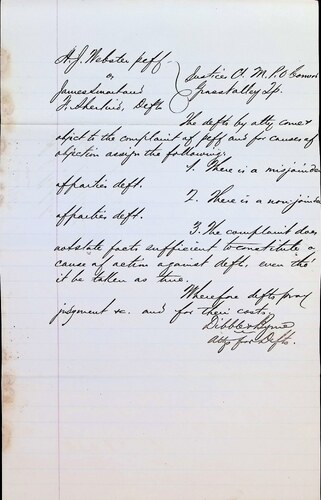 A. J. Webster plff
vs
James Smart and
H. Sherlius, Defts
Justices Ct. M. P. O'Connor
Grass Valley Tp.
The defts by atty come &
object to the complaint of plff and for causes of
objection assign the following:
1. There is a misjoinder
of parties deft.
2. There is a non-joinder
of parties deft.
3. The complaint does
not state facts sufficient to constitute a
cause of action against defts. even tho'
it be taken as true.
Wherefore defts pray
judgment &c. and for their costs.
Dibble &
Attys for Defts.